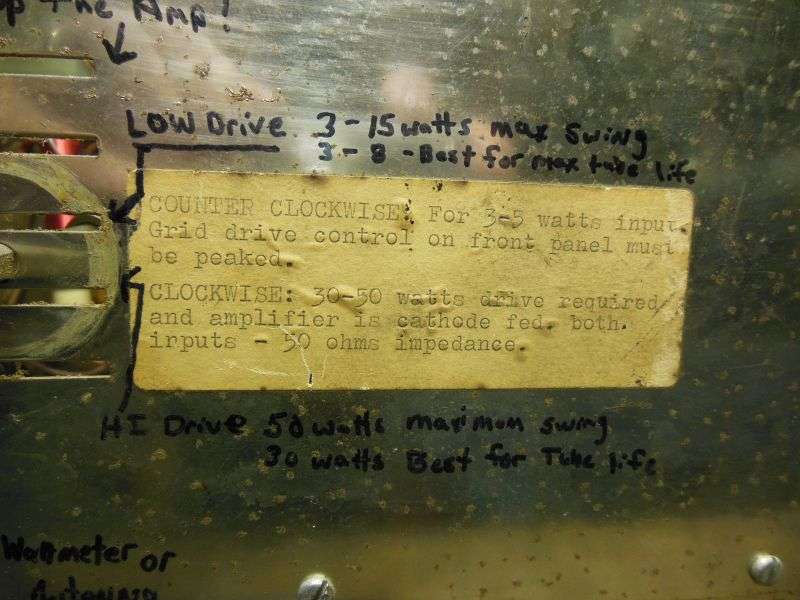 The Amp!
LOW Drive 3-15 watts max swing
3-8 - Best for max tube life
COUNTER CLOCKWISE: For 3-5 watts input.
Grid drive control on front panel must
be peaked.
CLOCKWISE: 30-50 watts drive required
and amplifier is cathode fed. both.
inputs - 50 ohms impedance.
HI Drive 50 watts maximum swing
30 watts Best for Tube life
Wattmeter or